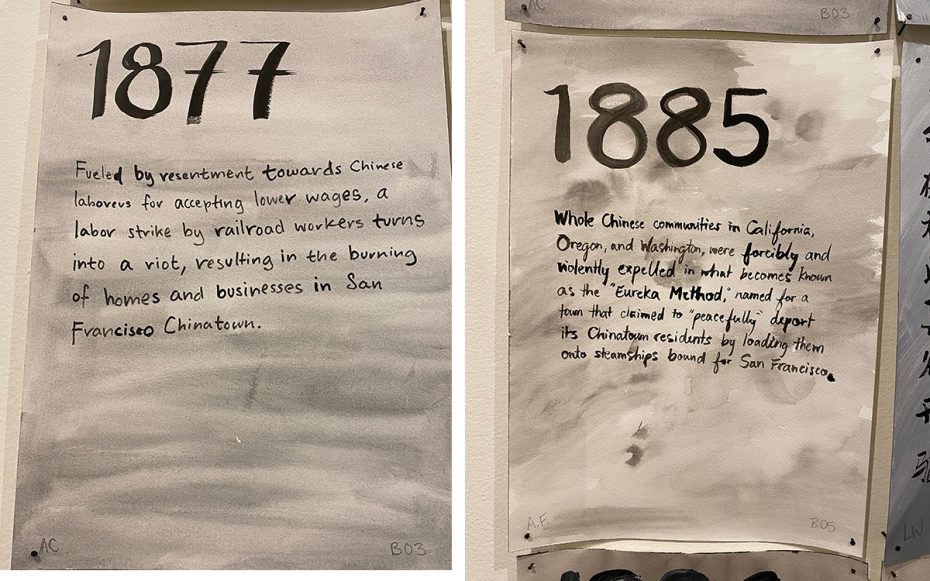 1877
Fueled by resentment towards Chinese
laborers for accepting lower wages, a
labor strike by railroad workers turns
into a riot, resulting in the burning
of homes and businesses in San
Francisco Chinatown.
AC
B03
AC
B03
1885
Whole Chinese communities in California,
Oregon, and Washington, were forcibly and
violently expelled in what becomes known
as the "Eureka Method," named for a
town that claimed to "peacefully" deport
its Chinatown residents by loading them
onto steamships bound for San Francisco.
A.F.
B05
LW